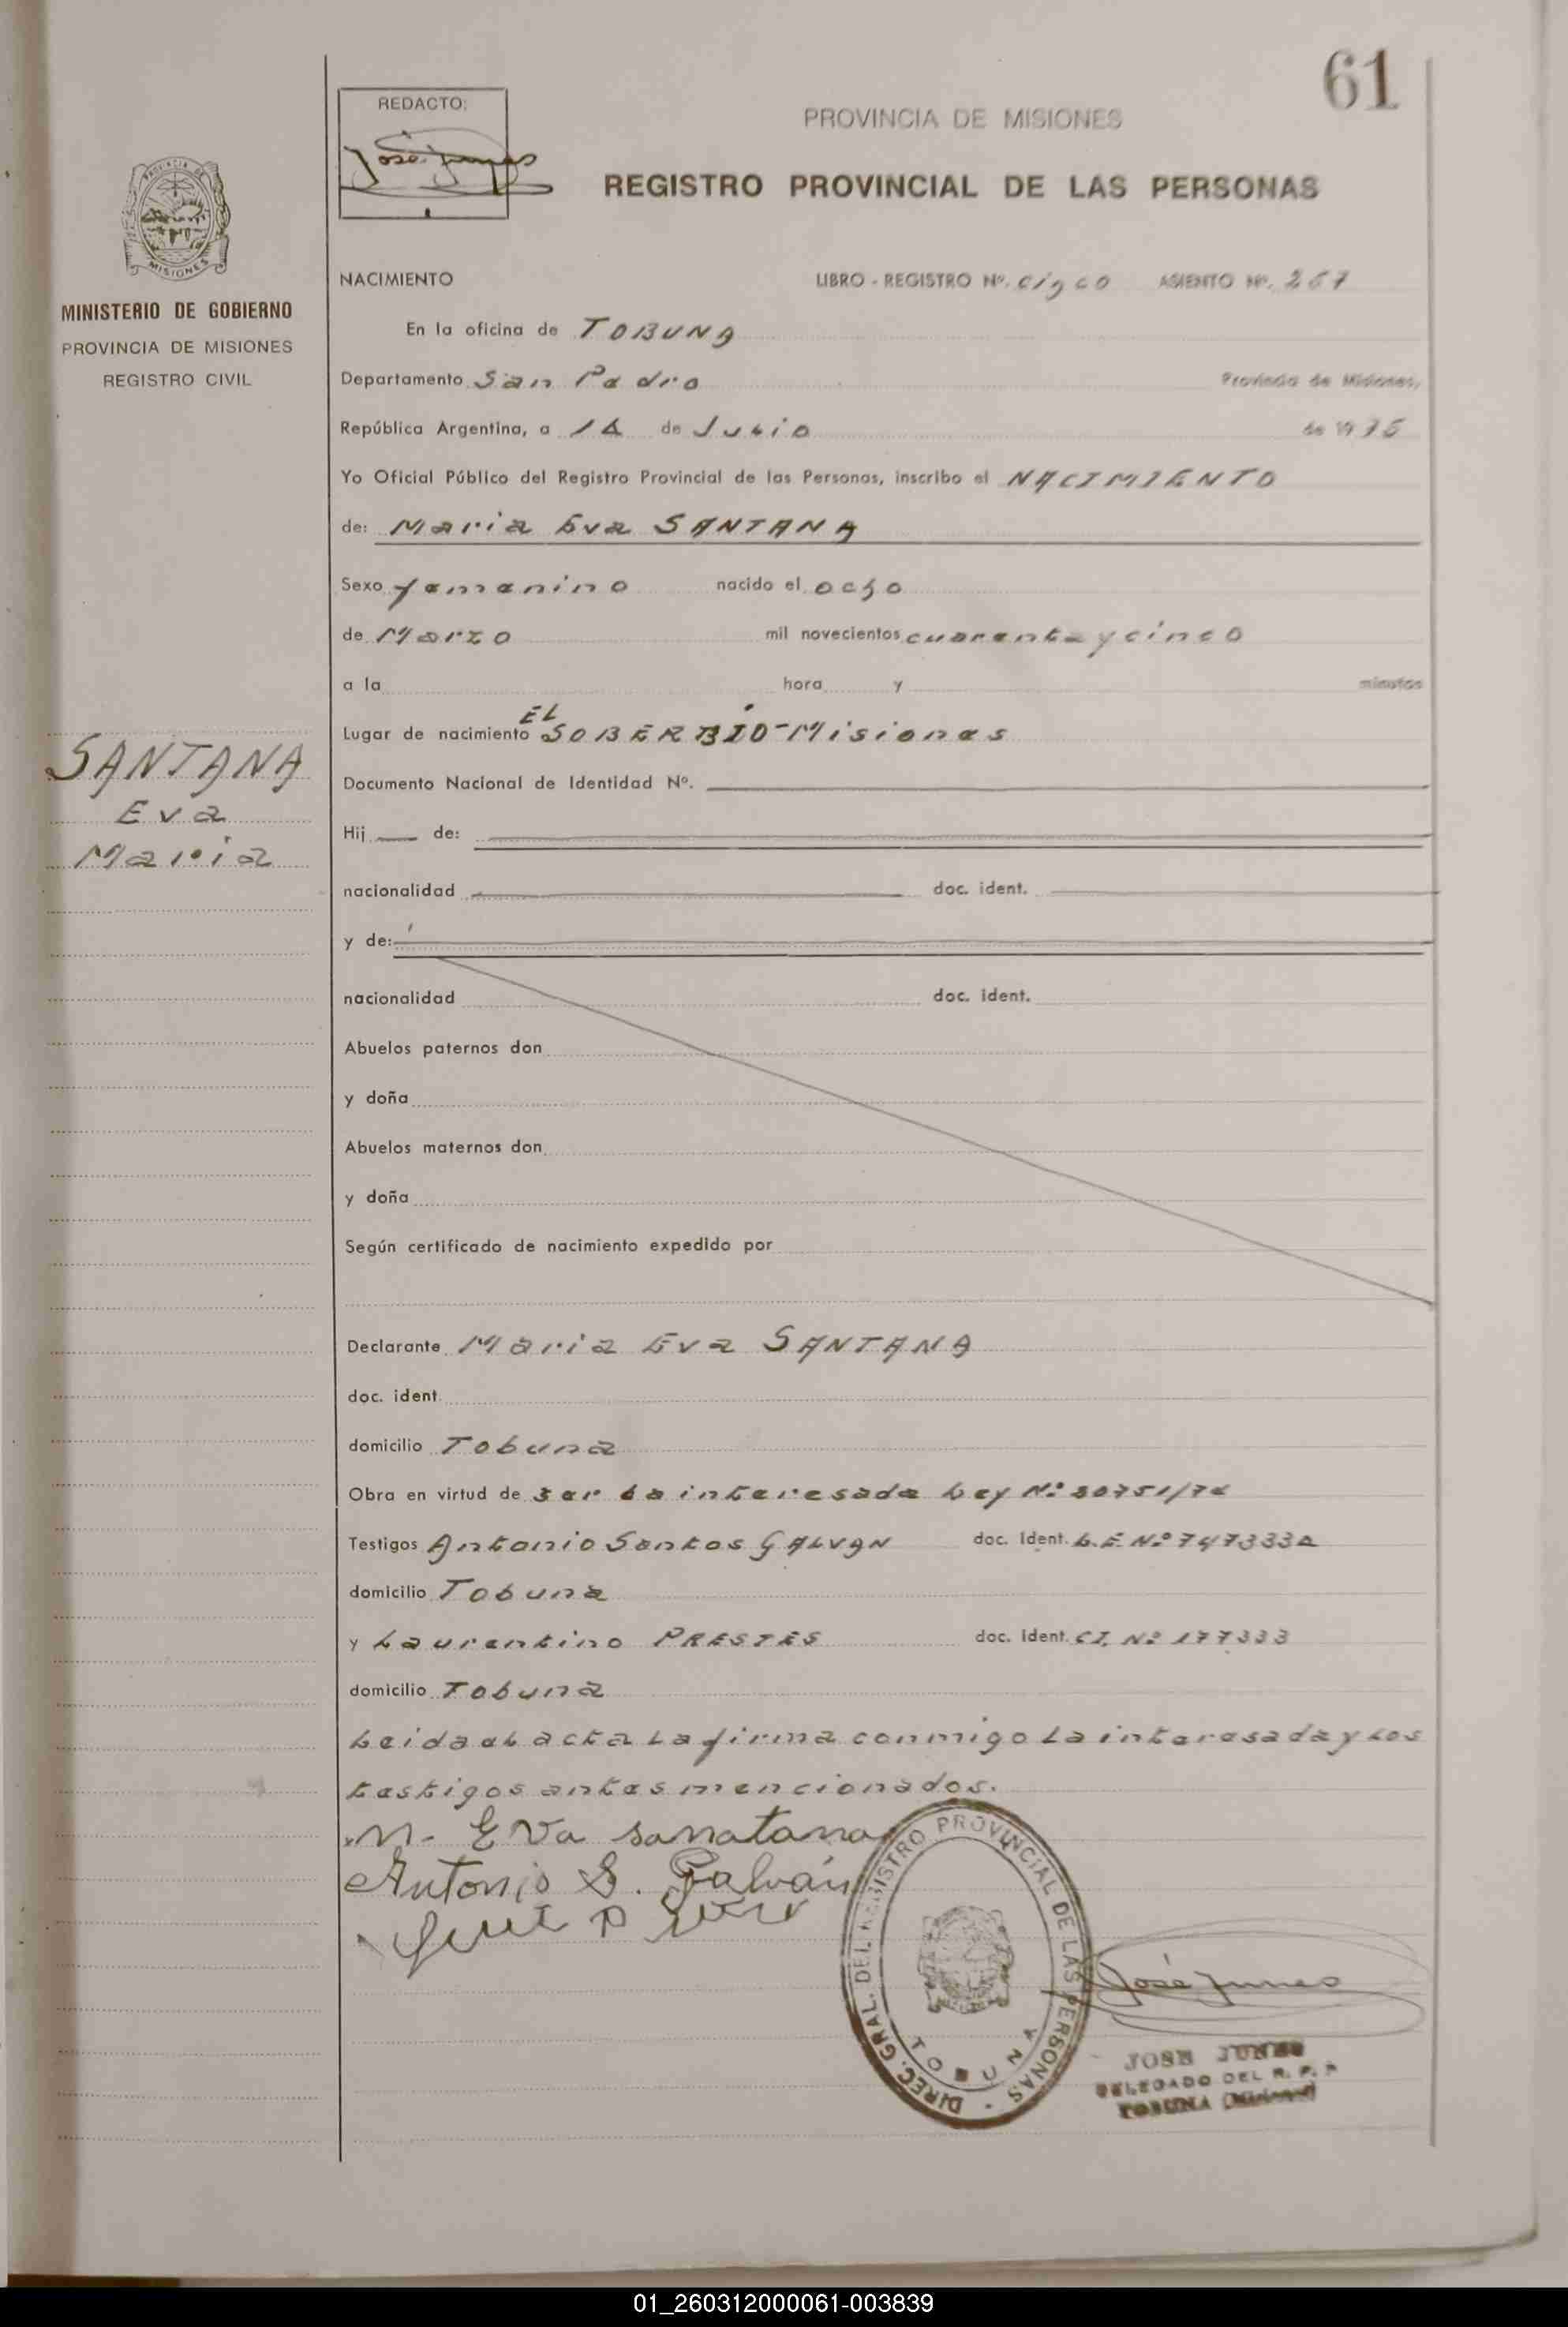 61
REDACTO:
José Junes
PROVINCIA DE MISIONES
REGISTRO PROVINCIAL DE LAS PERSONAS
PROVINCIA DE
MISIONES
MINISTERIO DE GOBIERNO
PROVINCIA DE MISIONES
REGISTRO CIVIL
NACIMIENTO LIBRO - REGISTRO Nº. cinco ASIENTO Nº. 267
En la oficina de TOBUNA
Departamento San Pedro Provincia de Misiones,
República Argentina, a 14 de Julio de 19
Yo Oficial Público del Registro Provincial de las Personas, inscribo el NACIMIENTO
de: Maria Eva SANTANA
Sexo femenino nacido el ocho
de Marzo mil novecientos cuarenta y cinco
a la hora y minutos
EL
Lugar de nacimiento SOBERBIO-Misiones
SANTANA
Eva
Maria
Documento Nacional de Identidad Nº.
Hij de:
nacionalidad doc. ident.
y de:
nacionalidad doc. ident.
Abuelos paternos don
y doña
Abuelos maternos don
y doña
Según certificado de nacimiento expedido por
Declarante Maria Eva SANTANA
doc. ident.
domicilio Tobuna
Obra en virtud de ser la interesada Ley Nº
Testigos Antonio Santos GALVAN doc. Ident. L.E. Nº
domicilio Tobuna
y Laurentino PRESTES doc. Ident. C.I. Nº 177333
domicilio Tobuna
Leida el acta La firma conmigo La interesada y Los
testigos antes mencionados.
M- Eva sanatana
Antonio S. Galván
DIREC. GRAL. DEL REGISTRO PROVINCIAL DE LAS PERSONAS -
TOBUNA
José Junes
JOSE JUNES
DELEGADO DEL R. P. P
TOBUNA (Misiones)
01_260312000061-003839